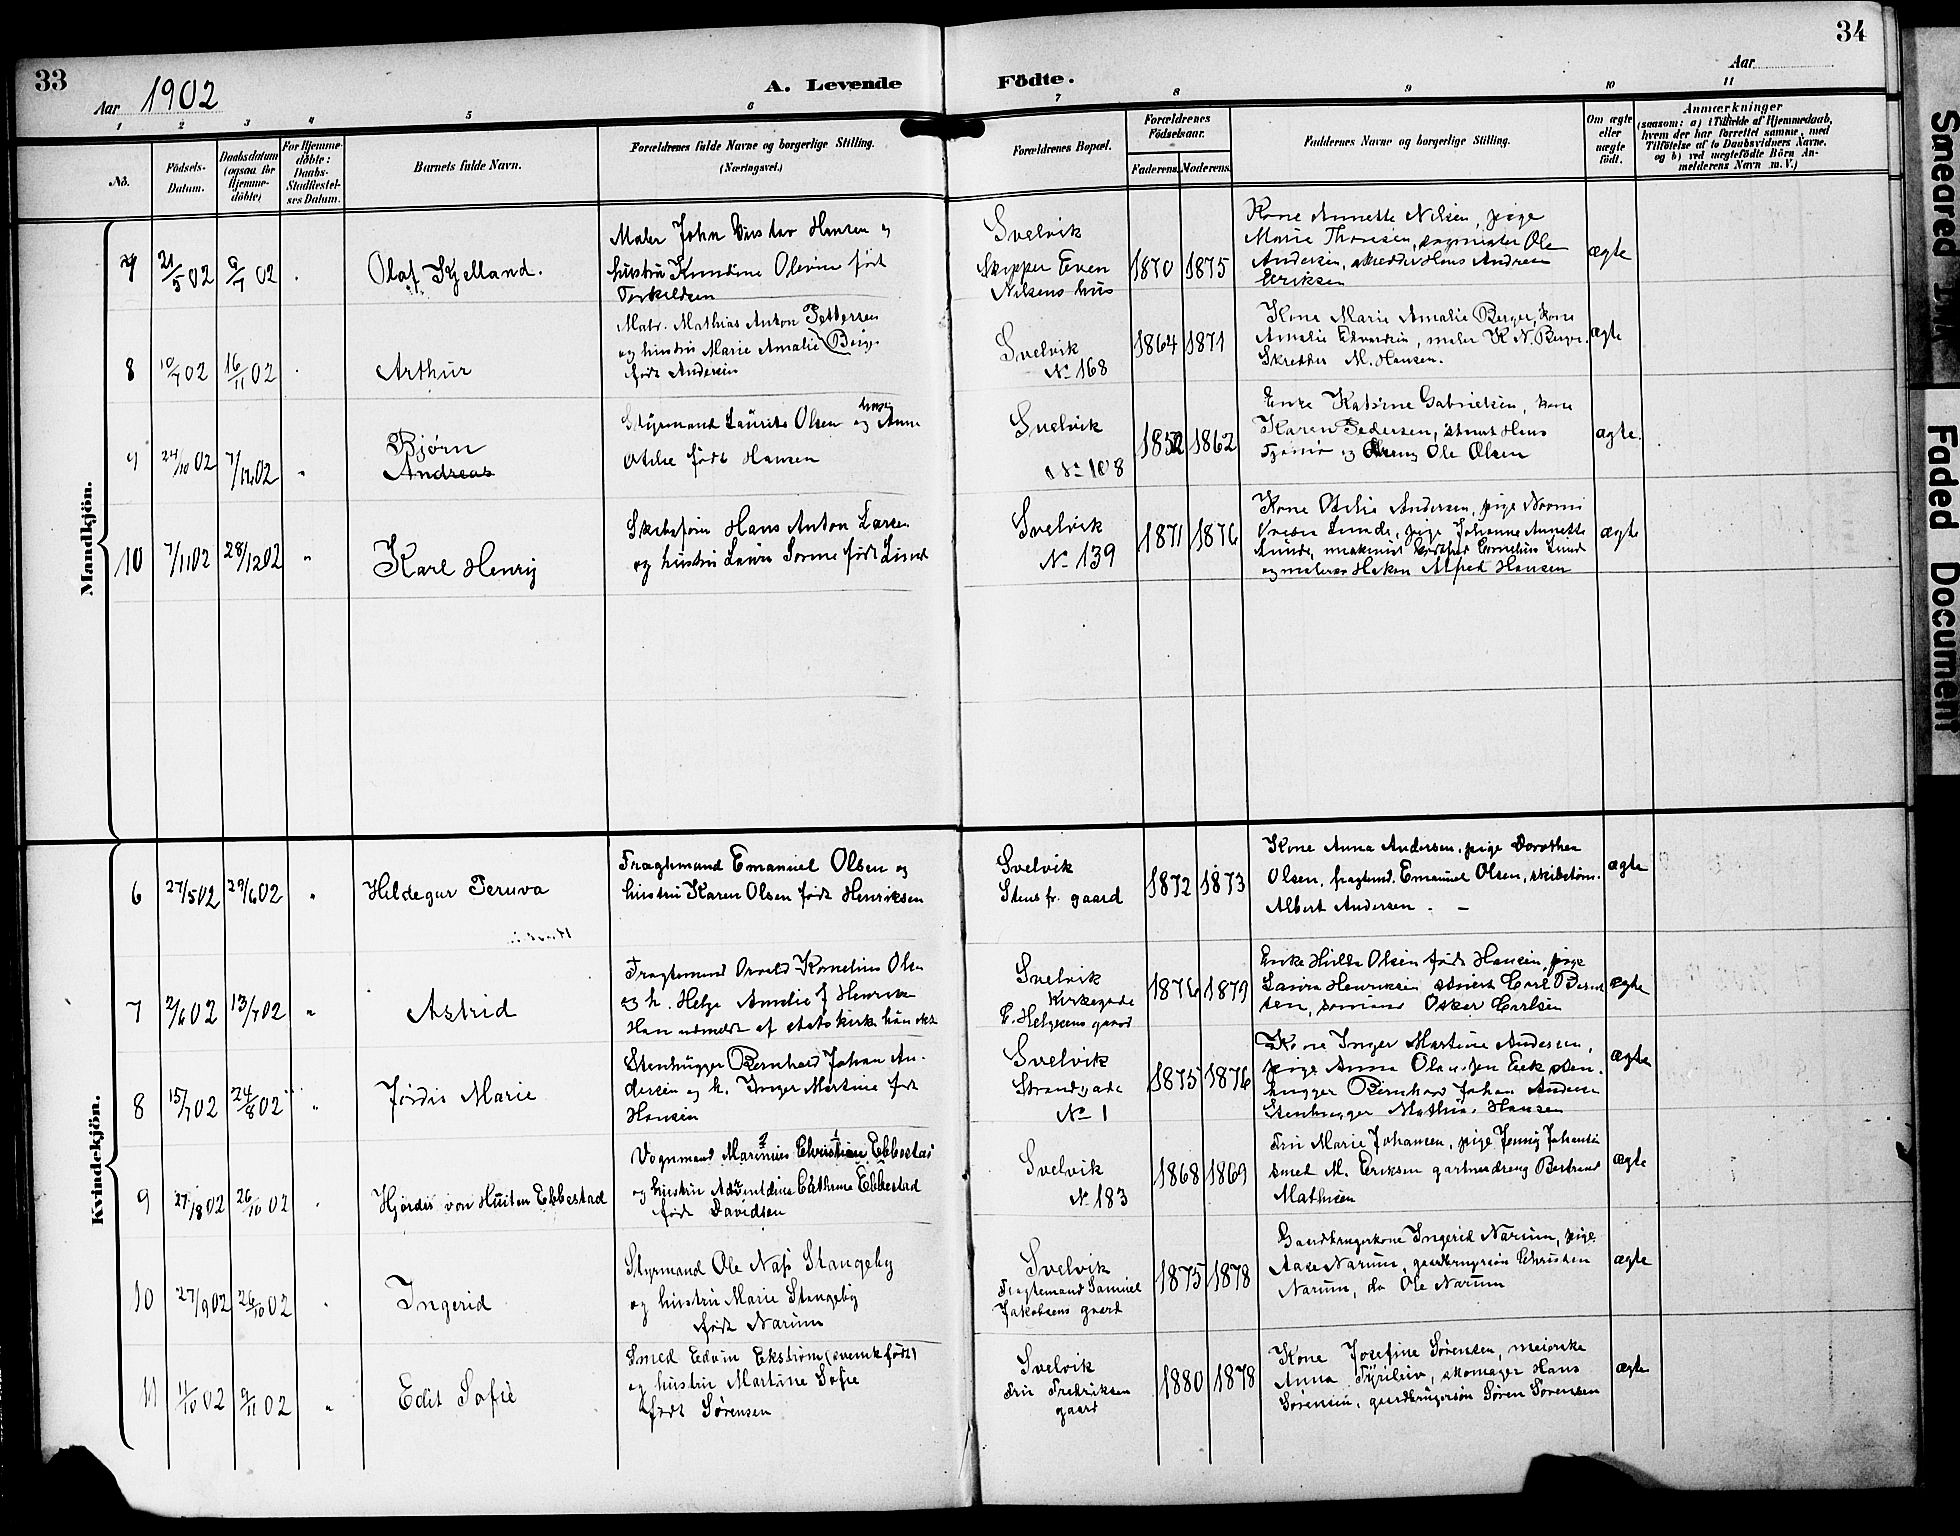 33
34
Aar 1902
A. Levende Fødte.
Aar
1 2 3 4 5 6 7 8 9 10 11
No.
Fødsels-Datum.
Daabsdatum (ogsaa for Hjemme-døbte)
For Hjemme-døbte: Daabs-Stadfæstel-ses Datum.
Barnets fulde Navn.
Forældrenes fulde Navne og borgerlige Stilling.
(Næringsvei.)
Forældrenes Bopæl.
Forældrenes Fødselsaar.
Faderens. Moderens.
Faddernes Navne og borgerlige Stilling.
Om ægte eller uægte født.
Anmærkninger
(saasom: a) i Tilfælde af Hjemmedaab,
hvem der har forrettet samme, med
Tilføielse af to Daabsvidners Navne,
og b) ved uægtefødte Börn An-
melderens Navn m. V.)
Mandkjön.
7 21/5 02 6/7 02 Olaf Kjelland.
Maler John Hansen og
hustru Kundine Olevine født
Torkildsen
Svelvik
Skipper Even
Nilsens hus
1870 1875
Kone Annette Nilsen, pige
Marie Thoresen, Ole
Andersen, skrædder Hans Andreas
Eriksen
ægte
8 10/7 02 16/11 02 Arthur
Matr. Mathias Anton Pettersen
og hustru Marie Amalie Berg.
født Andersen
Svelvik
No 168
1864 1871
Kone Marie Amalie Berger, kone
Amalie Edvardsen, maler K. N. Berger.
Skrædder M. Hansen.
ægte
9 24/10 02 7/12 02 " Bjørn
Andreas
Styrmand Laurits Olsen og hustru Anne
Otilie født Hansen
Svelvik
No 108
1852 1862
Enke Katrine Gabrielsen, kone
Karen Pedersen, Hans
og Ole Olsen
ægte.
10 7/11 02 28/12 02 " Karl Henry
Skibstøm Hans Anton Larsen
og hustru Laura født Lund
Svelvik
No 139
1871 1876
Kone Otilie Andersen, pige Naomi
Lunde, pige Johanne Annette
Lunde, maskinist Cornelius Lund
og Hakon Alfred Hansen
ægte
Kvindekjön.
6 27/5 02 29/6 02 " Hildegur Peruva
Fragtemand Emanuel Olsen og
hustru Karen Olsen født Henriksen
Svelvik
Stens fr. gaard
1872 1873
Kone Anna Andersen, pige Dorothea
Olsen, fragtmd. Emanuel Olsen, skibstøm.
Albert Andersen -
ægte
7 2/6 02 13/7 02 " Astrid
Fragtemand Osvald Kornelius Olsen
og h. Helga Amalie f Henriksen
Han udmeldt af statskirke hun
Svelvik
Kirkegade
E. Helgesens gaard
1876 1879
Enke Hulda Olsen født Hansen, pige
Laura Henriksen Carl Bernt
sen, sømand Oskar Carlsen
ægte
8 15/7 02 24/8 02 " Jørdis Marie
Stenhugger Bernhard Johan An-
dersen og h. Inger Martine født
Hansen
Svelvik
Strandgade
No 1
1875 1876
Kone Inger Martine Andersen,
pige Anna Olausen Eek sten-
hugger Bernhard Johan Andersen
Stenhugger Mathias Hansen
ægte
9 27/8 02 26/10 02 Hjørdis von Huiten Ebbestad
Vognmand Marinius Christian Ebbestad
og hustru Adventdine Cathrine Ebbestad
født Davidsen
Svelvik
No 183
1868 1869
Fru Marie Johansen, pige Jenny Johansen
smed M. Eriksen gartnerdreng Bertrand
Mathisen
ægte
10 27/9 02 26/10 02 Ingerid
Styrmand Ole Næss Stangeby
og hustru Marie Stangeby
født Narum
Svelvik
Fragtemand Samuel
Jakobsens gaard
1875 1878
Gaardbrugerkone Ingerid Narum, pige
Aase Narum, gaardbrugersøn Christian
Narum, do Ole Narum
ægte
11 11/10 02 9/11 02 " Edit Sofie
Smed Edvin Ekstrøm (svensk født)
og hustru Martine Sofie
født Sørensen
Svelvik
Fru Fredriksen
gaard
1880 1878
Kone Josefine Sørensen, meierske
Anna, skomager Hans
Sørensen, gaardbrugersøn Søren Sørensen
ægte
Faded Document